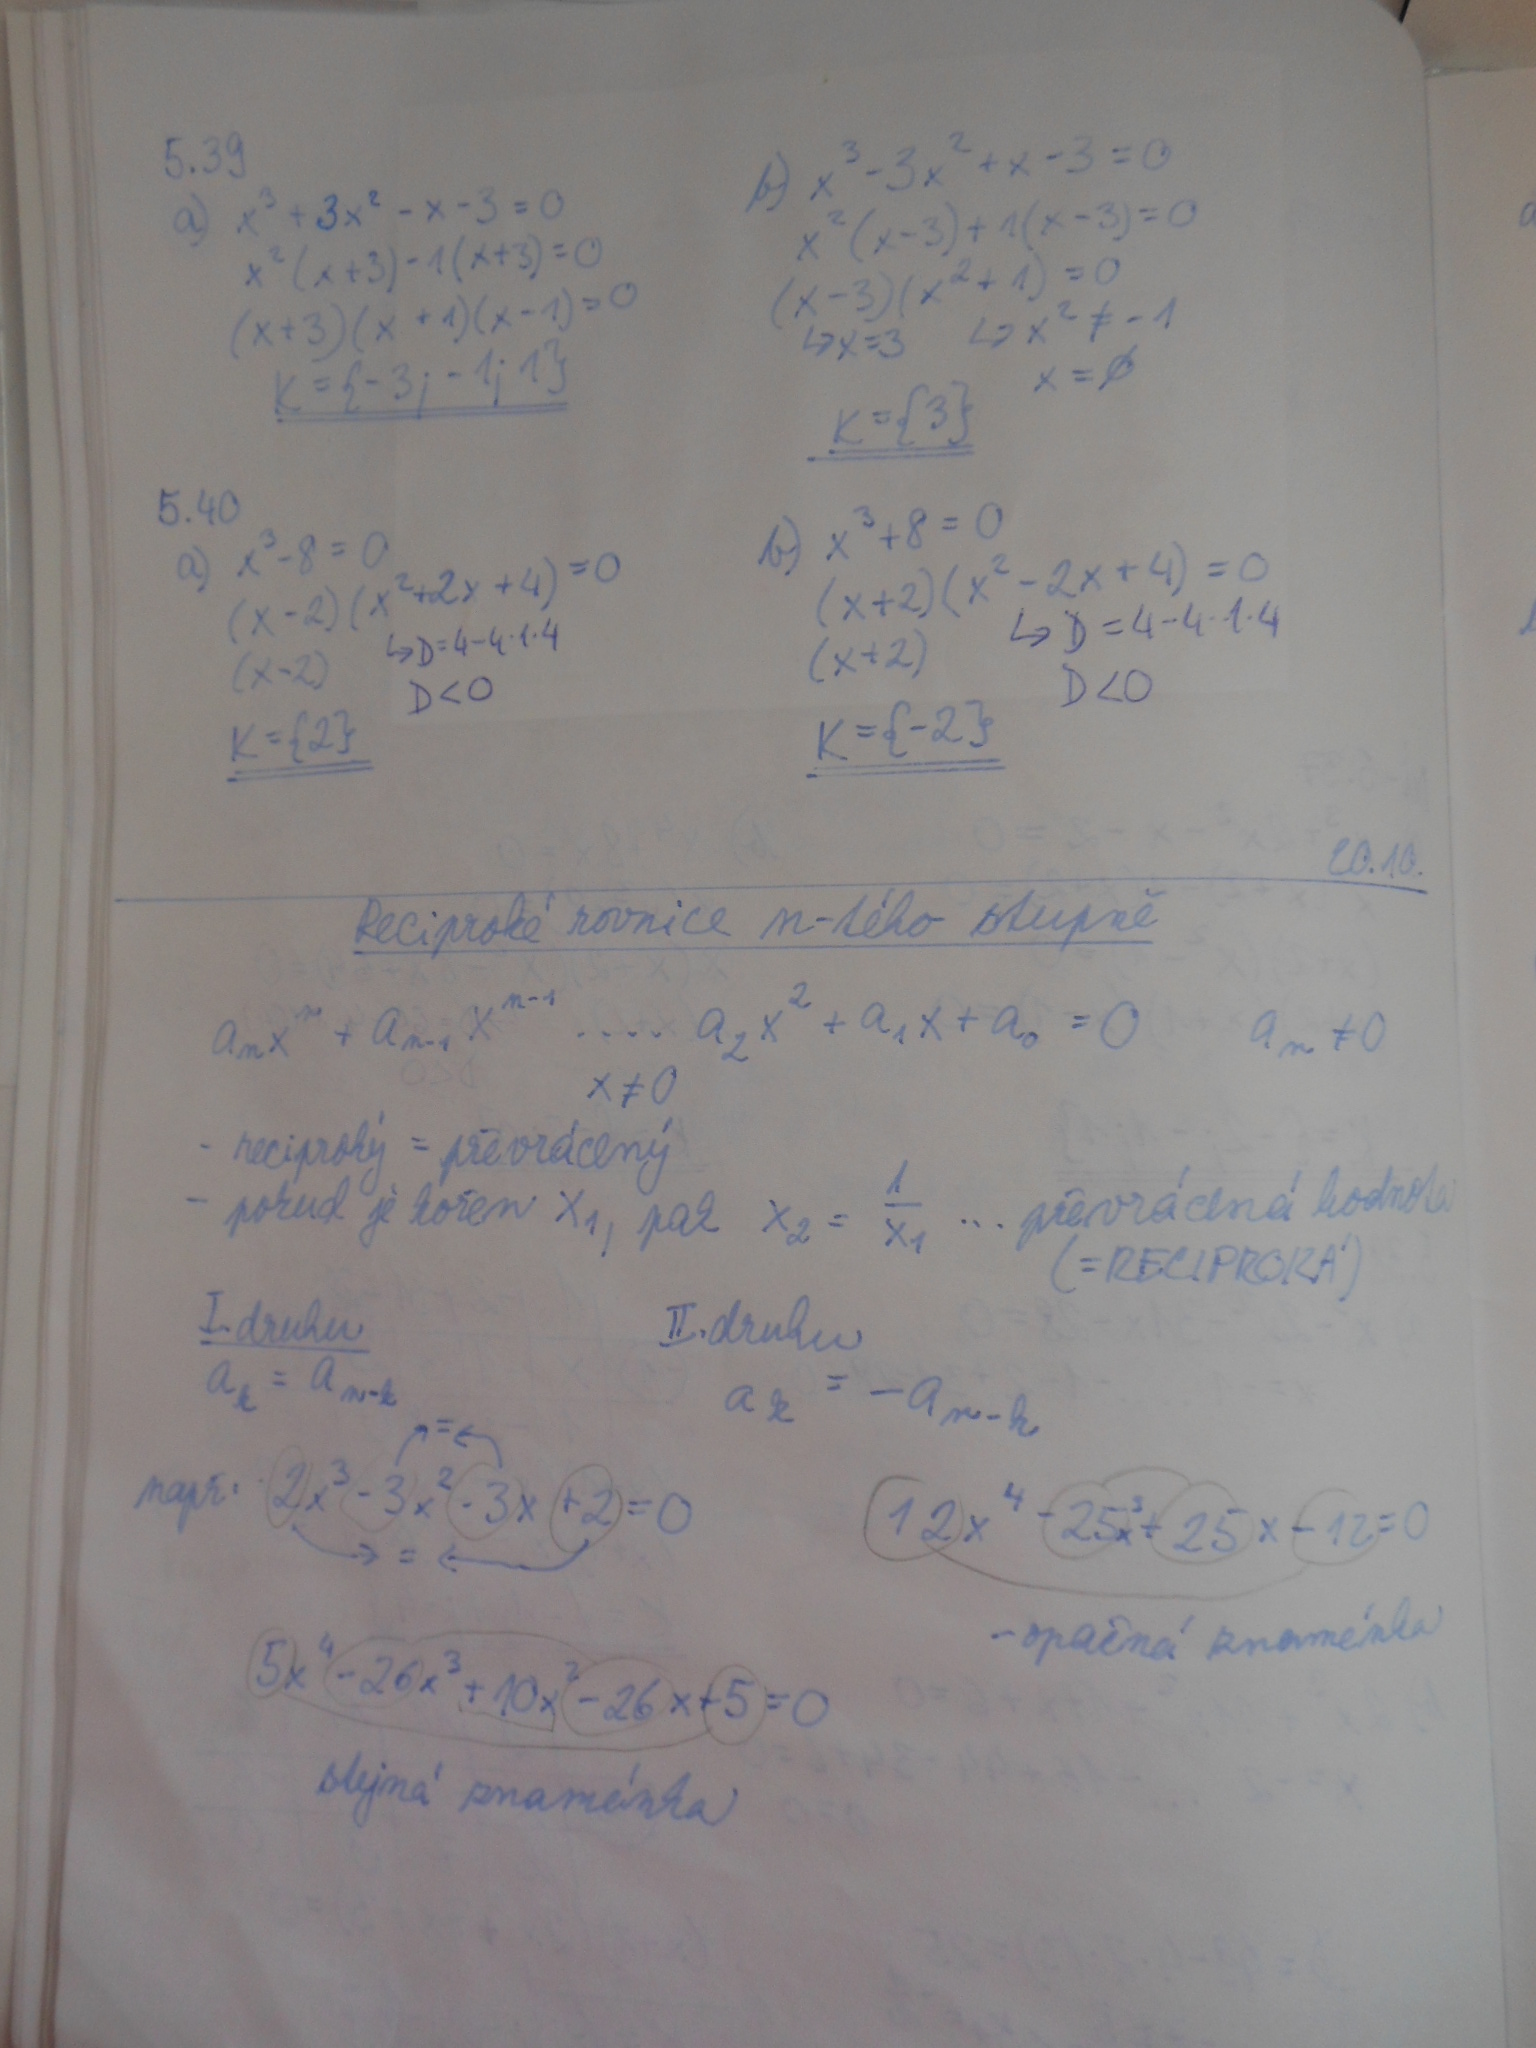 5.39
a) x³ + 3x² - x - 3 = 0
x²(x+3) - 1(x+3) = 0
(x+3)(x+1)(x-1) = 0
K = {-3; -1; 1}
b) x³ - 3x² + x - 3 = 0
x²(x-3) + 1(x-3) = 0
(x-3)(x²+1) = 0
↳ x=3 ↳ x² ≠ -1
x = ∅
K = {3}
5.40
a) x³ - 8 = 0
(x-2)(x²+2x+4) = 0
(x-2) ↳ D = 4-4·1·4
D < 0
K = {2}
b) x³ + 8 = 0
(x+2)(x²-2x+4) = 0
(x+2) ↳ D = 4-4·1·4
D < 0
K = {-2}
20.10.
Reciproké rovnice n-tého stupně
aₙxⁿ + aₙ₋₁xⁿ⁻¹ ..... a₂x² + a₁x + a₀ = 0 aₙ ≠ 0
x ≠ 0
- reciproký = převrácený
- pokud je kořen x₁, pak x₂ = 1/x₁ ... převrácená hodnota
(=RECIPROKÁ)
I. druhu
aₖ = aₙ₋ₖ
=
např: 2x³ - 3x² - 3x + 2 = 0
=
5x⁴ - 26x³ + 10x² - 26x + 5 = 0
stejná znaménka
II. druhu
aₖ = -aₙ₋ₖ
12x⁴ - 25x³ + 25x - 12 = 0
- opačná znaménka